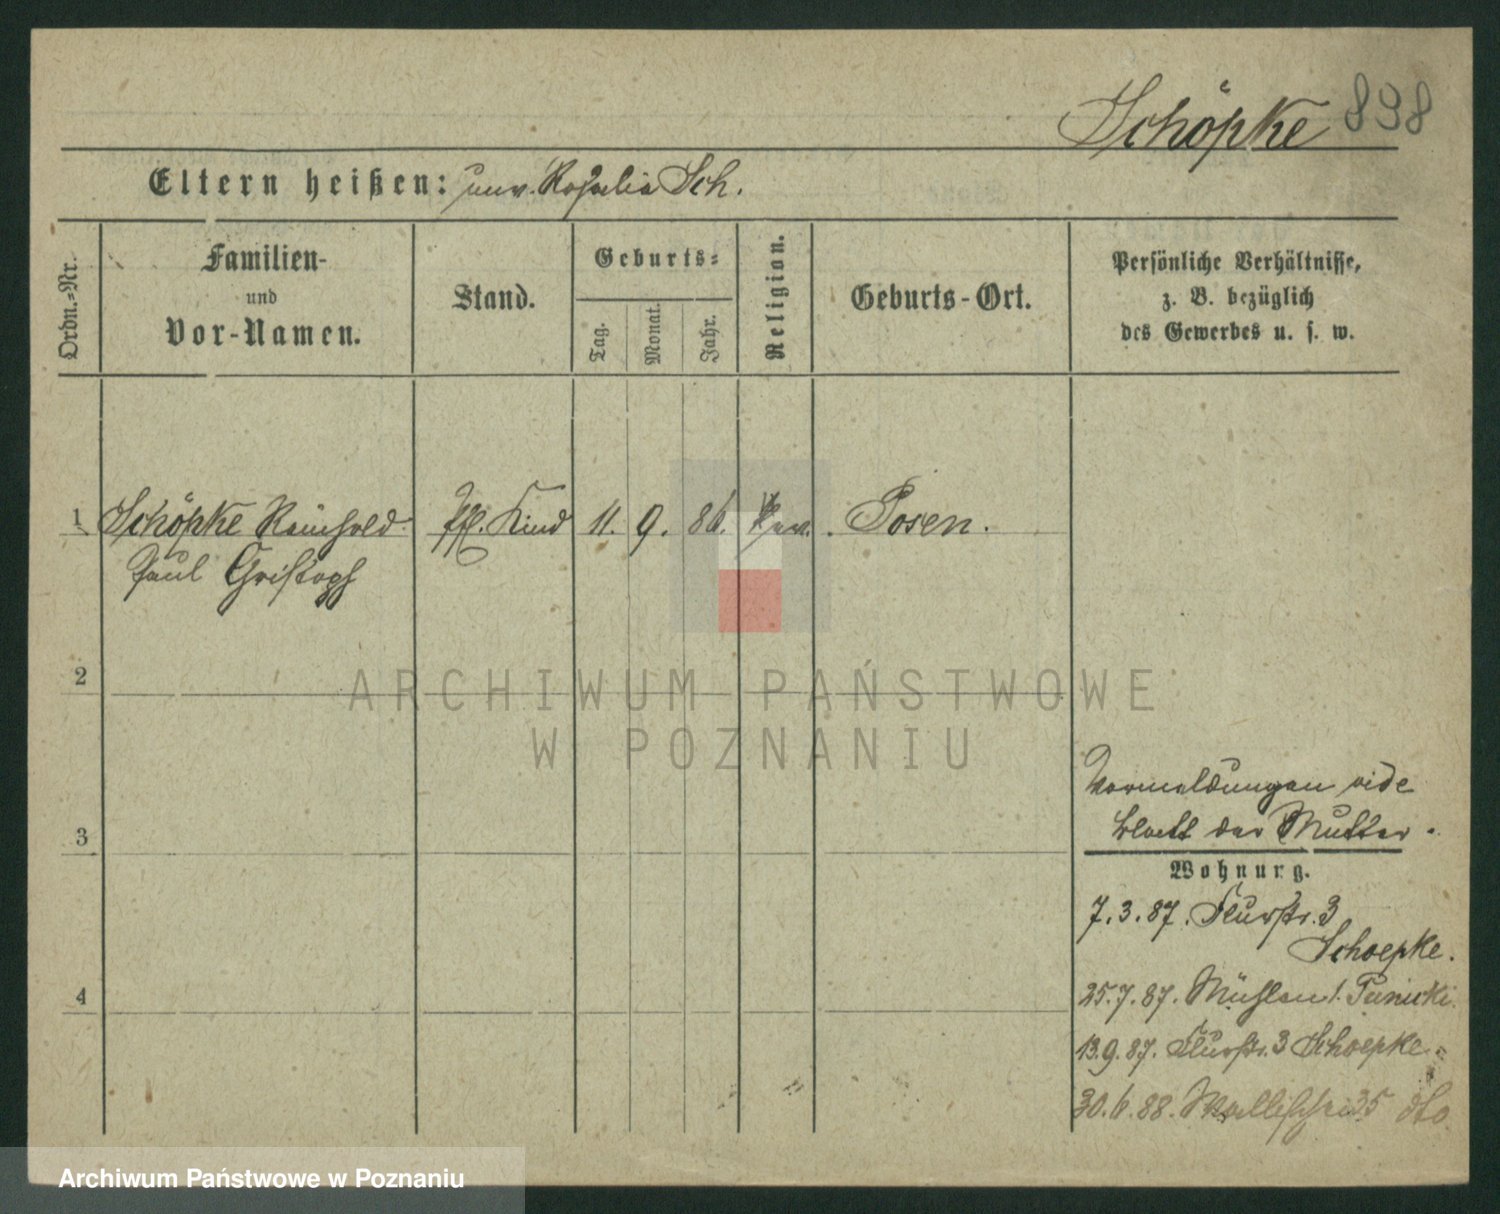 Schöpke 898
Eltern heißen: unv. Rosalie Sch.
Ordn.=Nr.
Familien-
und
Vor-Namen.
Stand.
Geburts=
Tag.
Monat.
Jahr.
Religion.
Geburts-Ort.
Persönliche Verhältnisse,
z. B. bezüglich
des Gewerbes u. s. w.
1 Schöpke Reinhold Pfl. Kind 11. 9. 86. Posen.
Paul Christoph
2
ARCHIWUM PAŃSTWOWE
W POZNANIU
Vormeldungen vide
Blatt der Mutter.
3
Wohnung.
7.3.87. Flurstr. 3
Schoepke.
4
25.7.87. Mühlen
13.9.87. Flurstr. 3 Schoepke.
30.6.88. Wallischei 35 dto.
Archiwum Państwowe w Poznaniu